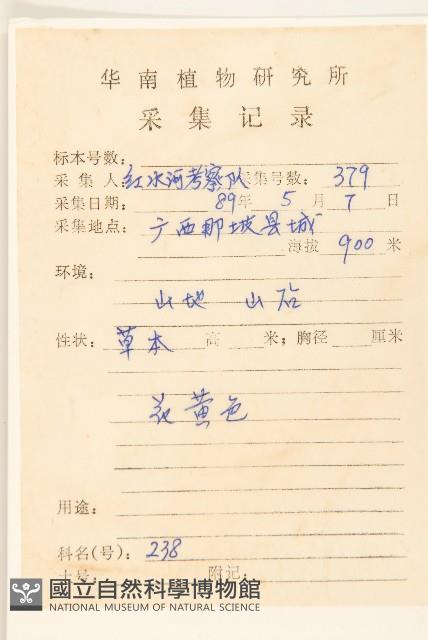 华南植物研究所
采集记录
标本号数：
采集人：红水河考察队 采集号数：379
采集日期：89年 5月 7日
采集地点：广西那坡县城
海拔 900 米
环境：
山地 山沿
性状：草本 高 米；胸径 厘米
花黄色
用途：
科名(号)：238
土名： 附记：
國立自然科學博物館
NATIONAL MUSEUM OF NATURAL SCIENCE